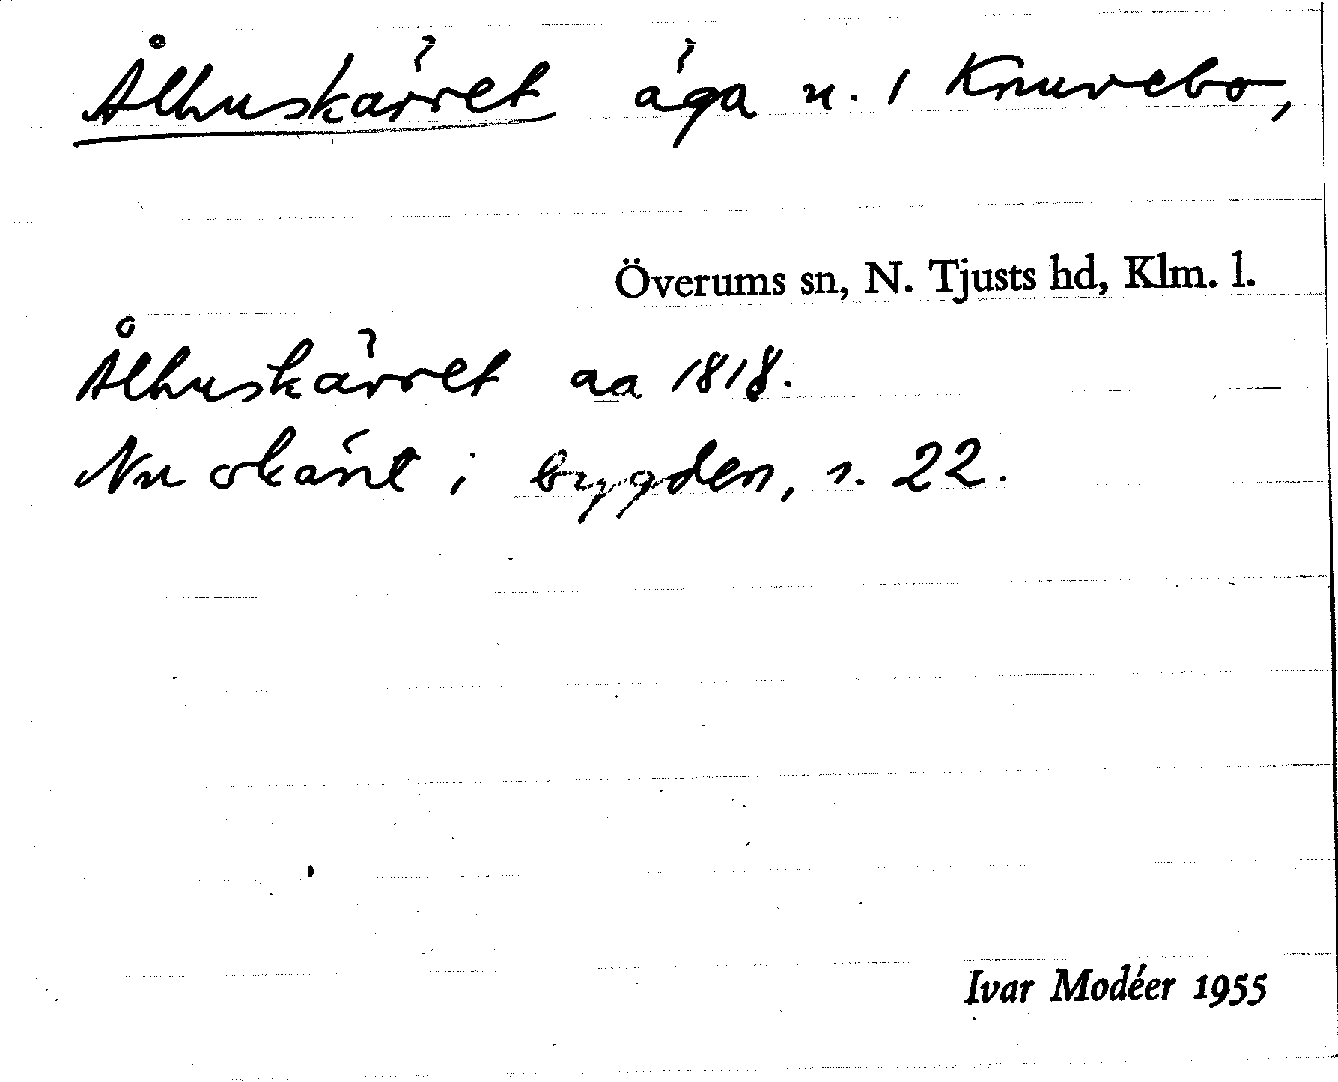 Ålhuskärret äga n. 1 Knurebo,
Överums sn, N. Tjusts hd, Klm. l.
Ålhuskärret aa 1818.
Nu okänt i bygden, s. 22.
Ivar Modéer 1955